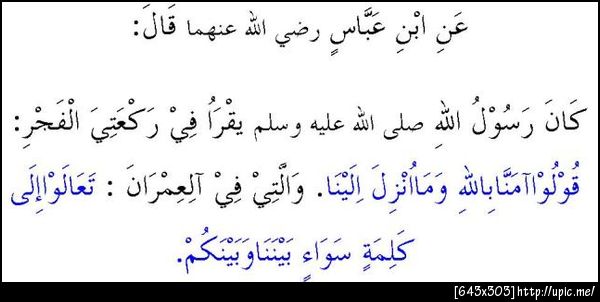 عَنِ ابْنِ عَبَّاسٍ رضي الله عنهما قَالَ:
كَانَ رَسُوْلُ اللهِ صلى الله عليه وسلم يقْرَاُ فِيْ رَكْعَتِيَ الْفَجْرِ:
قُوْلُوْاآمَنَّابِاللهِ وَمَااُنْزِلَ اِلَيْنَا. وَالَّتِيْ فِيْ آلِعِمْرَانَ : تَعَالَوْاإِلَى
كَلِمَةٍ سَوَاءٍ بَيْنَنَاوَبَيْنَكُمْ.
[643x303] http://upic.me/